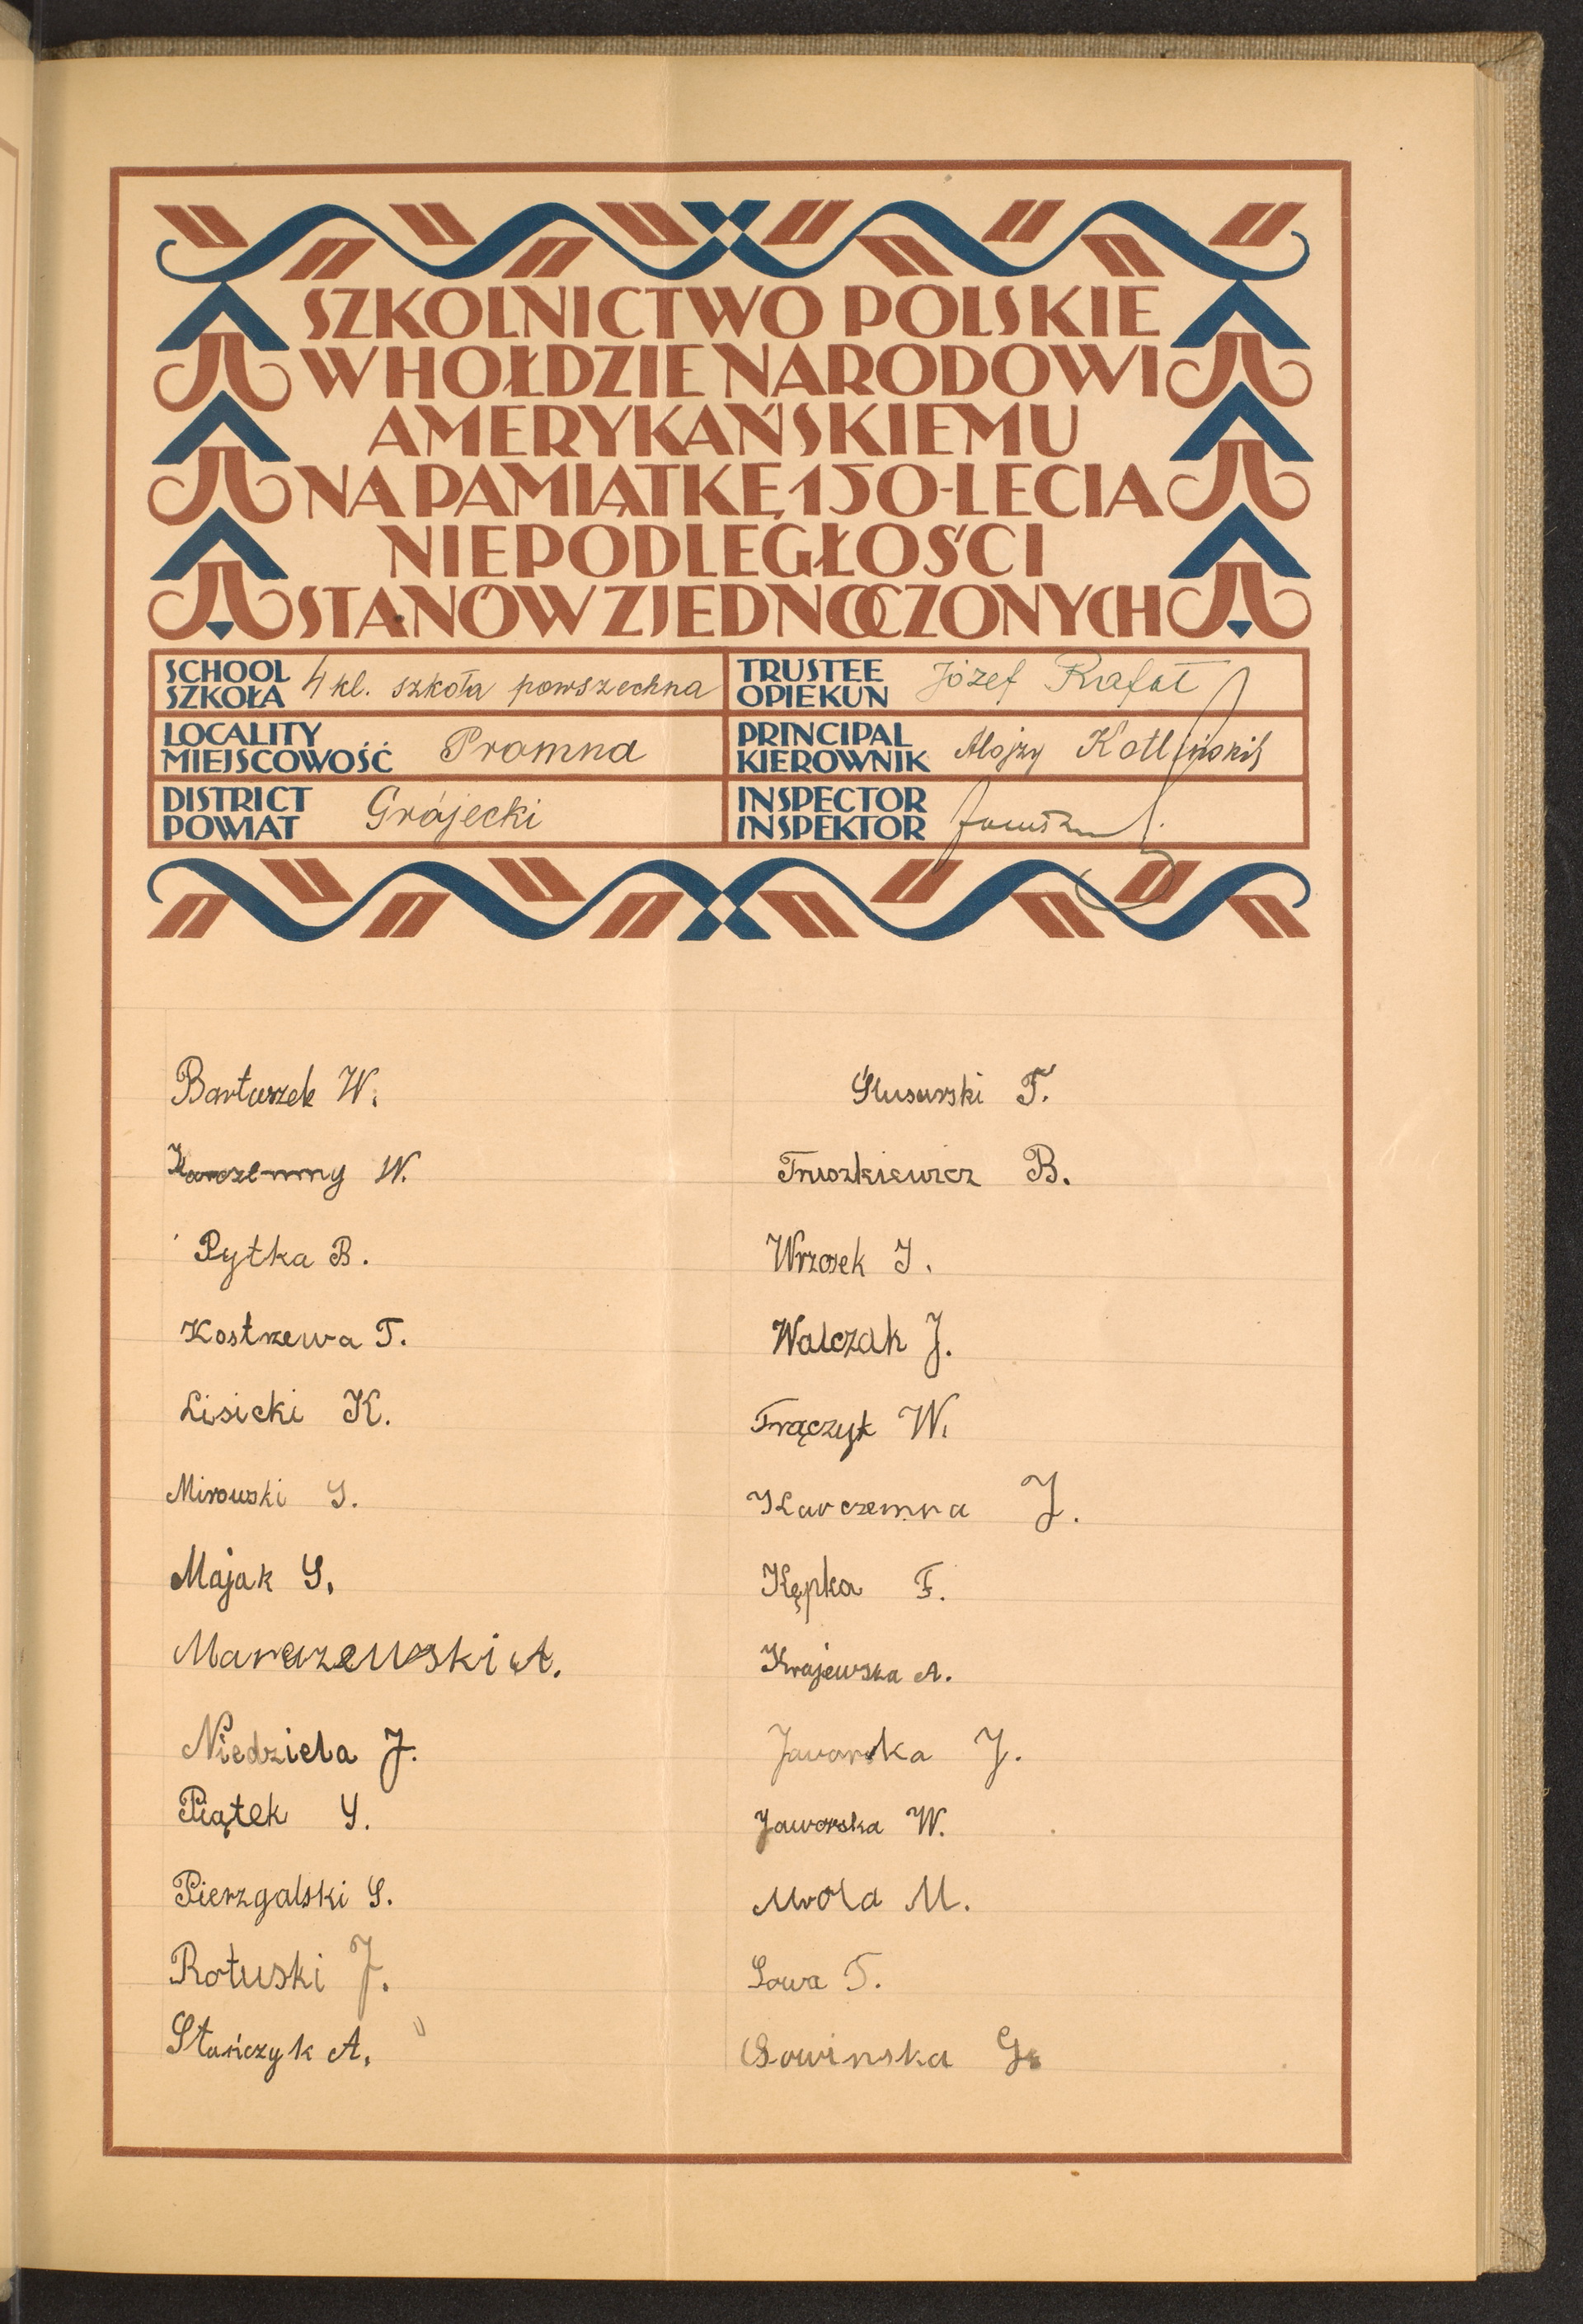 SZKOLNICTWO POLSKIE
W HOŁDZIE NARODOWI
AMERYKAŃSKIEMU
NA PAMIĄTKĘ 150-LECIA
NIEPODLEGŁOŚCI
STANÓW ZJEDNOCZONYCH
SCHOOL
SZKOŁA
4 kl. szkoła powszechna
TRUSTEE
OPIEKUN
Józef Rafał
LOCALITY
MIEJSCOWOŚĆ
Promna
PRINCIPAL
KIEROWNIK
Alojzy Kotliński
DISTRICT
POWIAT
Grójecki
INSPECTOR
INSPEKTOR
Bartuszek W.
Karczemny W.
Pytka B.
Kostrzewa T.
Lisicki K.
Mirowski S.
Majak S.
Marszewski A.
Niedziela J.
Piątek S.
Pierzgalski S.
Rotuski J.
Stańczyk A.
Ślusarski F.
Truszkiewicz B.
Wrzosek J.
Walczak J.
Frączyk W.
Karczemna J.
Kępka F.
Krajewska A.
Jaworska J.
Jaworska W.
Mrola M.
Sowa T.
Sowinska G.